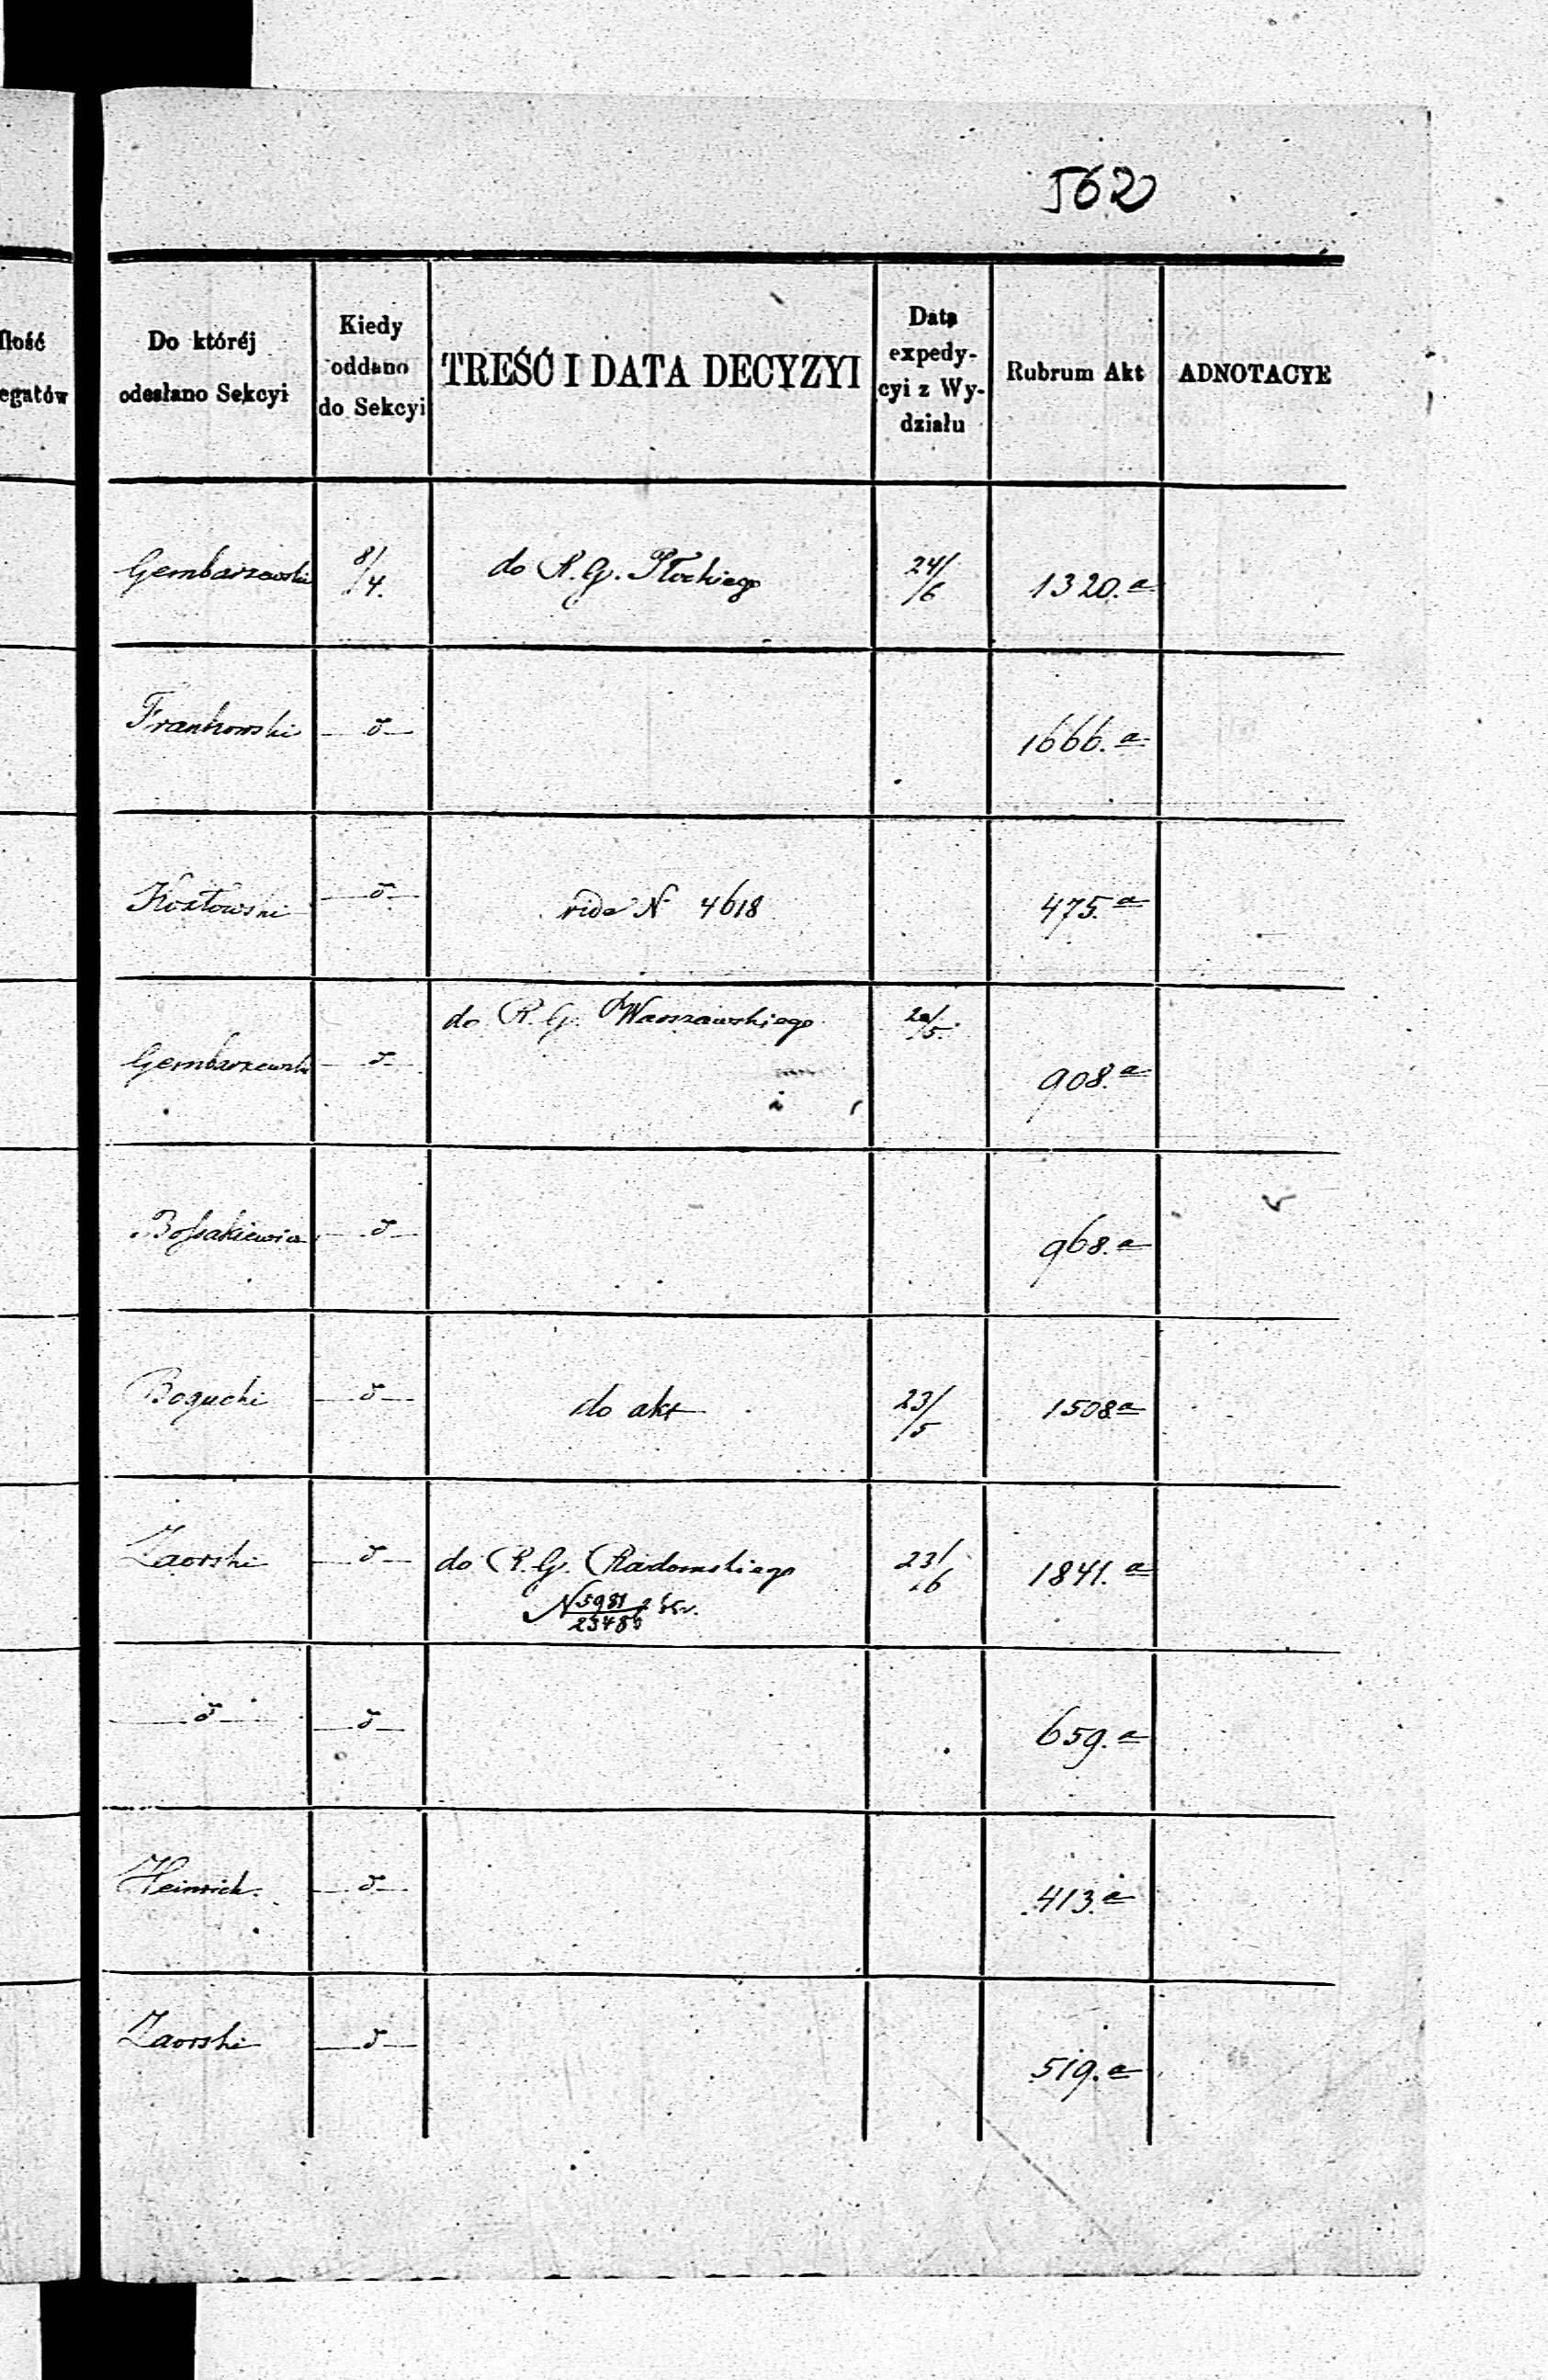 562
Ilość
egatów
Do któréj
odesłano Sekcyi
Kiedy
oddano
do Sekcyi
TREŚĆ I DATA DECYZYI
Data
expedy-
cyi z Wy-
działu
Rubrum Akt
ADNOTACYE
Gembarzewski 8/4. do R. G. Płockiego 24/6 1320.a
Frankowski —ď— 1666.a
Kozłowski —ď— vide N 4618 475.a
Gembarzewski —ď— do R. G. Warszawskiego 20/5. 908.a
Bossakiewicz —ď— 968.a
Bogucki —ď— do akt 23/5 1508a
Zaorski —ď— do R. G. Radomskiego 23/6 1841.a
N 5981/23486
—ď— —ď— 659.a
Heinrich. —ď— 413.a
Zaorski —ď— 519.a